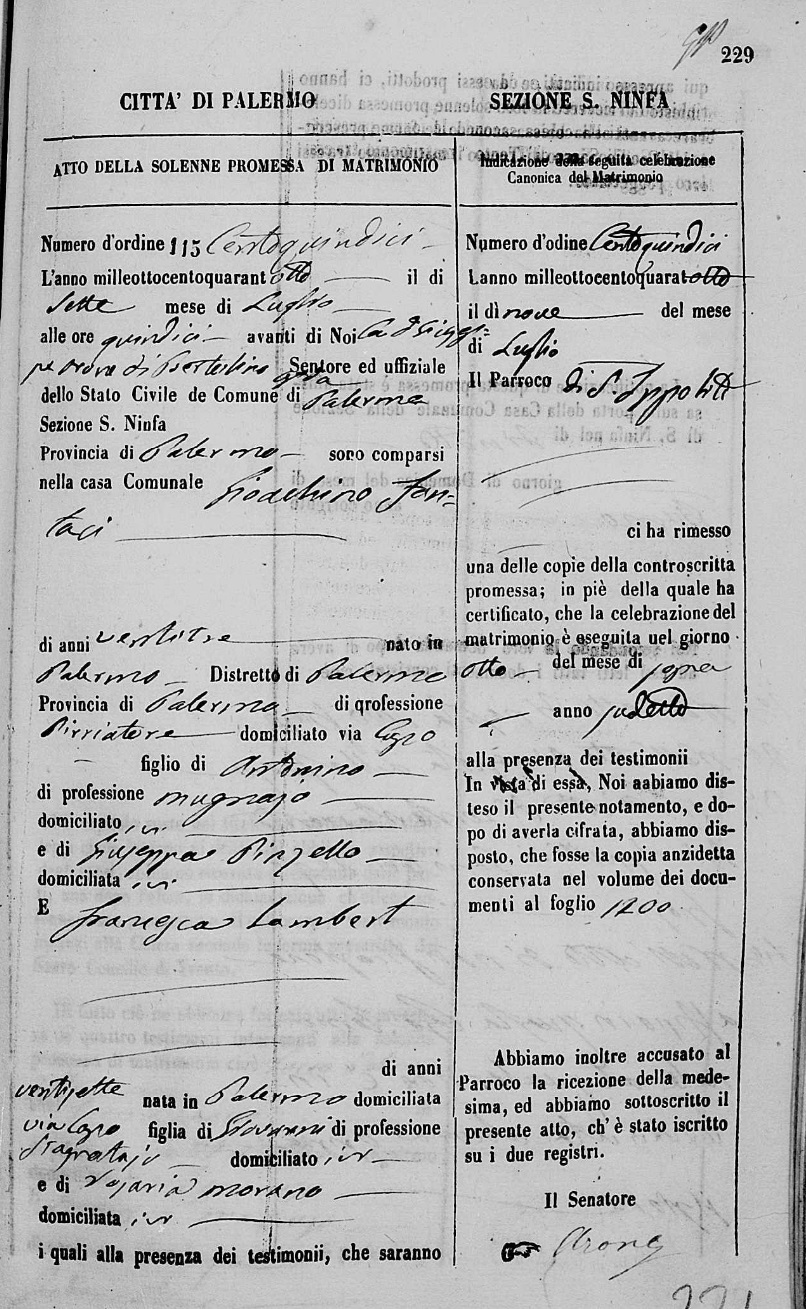 229
CITTA' DI PALERMO
SEZIONE S. NINFA
ATTO DELLA SOLENNE PROMESSA DI MATRIMONIO
Numero d'ordine 115 Centoquindici
L'anno milleottocentoquarant otto il di
Sette mese di Luglio
alle ore quindici avanti di Noi
Sentore ed uffiziale
dello Stato Civile de Comune di Palermo
Sezione S. Ninfa
Provincia di Palermo sono comparsi
nella casa Comunale Gioachino Fan-
taci
di anni ventitre nato in
Palermo Distretto di Palermo
Provincia di Palermo di qrofessione
Pirriatore domiciliato via
figlio di Antonino
di professione mugnajo
domiciliato ivi
e di Giuseppa Pizzello
domiciliata ivi
E Francesca Lambert
di anni
ventisette nata in Palermo domiciliata
via figlia di Giovanni di professione
domiciliato ivi
e di Rosaria Morano
domiciliata ivi
i quali alla presenza dei testimonii, che saranno
Indicazione della seguita celebrazione
Canonica del Matrimonio
Numero d'odine Centoquindici
Lanno milleottocentoquarat otto
il dì nove del mese
di Luglio
Il Parroco di S. Ippolito
ci ha rimesso
una delle copie della controscritta
promessa; in piè della quale ha
certificato, che la celebrazione del
matrimonio è eseguita uel giorno
otto del mese di sopra
anno sudetto
alla presenza dei testimonii
In vista di essa, Noi aabiamo dis-
teso il presente notamento, e do-
po di averla cifrata, abbiamo dis-
posto, che fosse la copia anzidetta
conservata nel volume dei docu-
menti al foglio 1200
Abbiamo inoltre accusato al
Parroco la ricezione della mede-
sima, ed abbiamo sottoscritto il
presente atto, ch' è stato iscritto
su i due registri.
Il Senatore